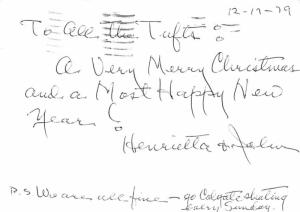 12-17-79
To All the Tufts :-
A Very Merry Christmas
and a Most Happy New
Year !
Henrietta & John
P.S. We are all fine - go Colgate skating
every Sunday.